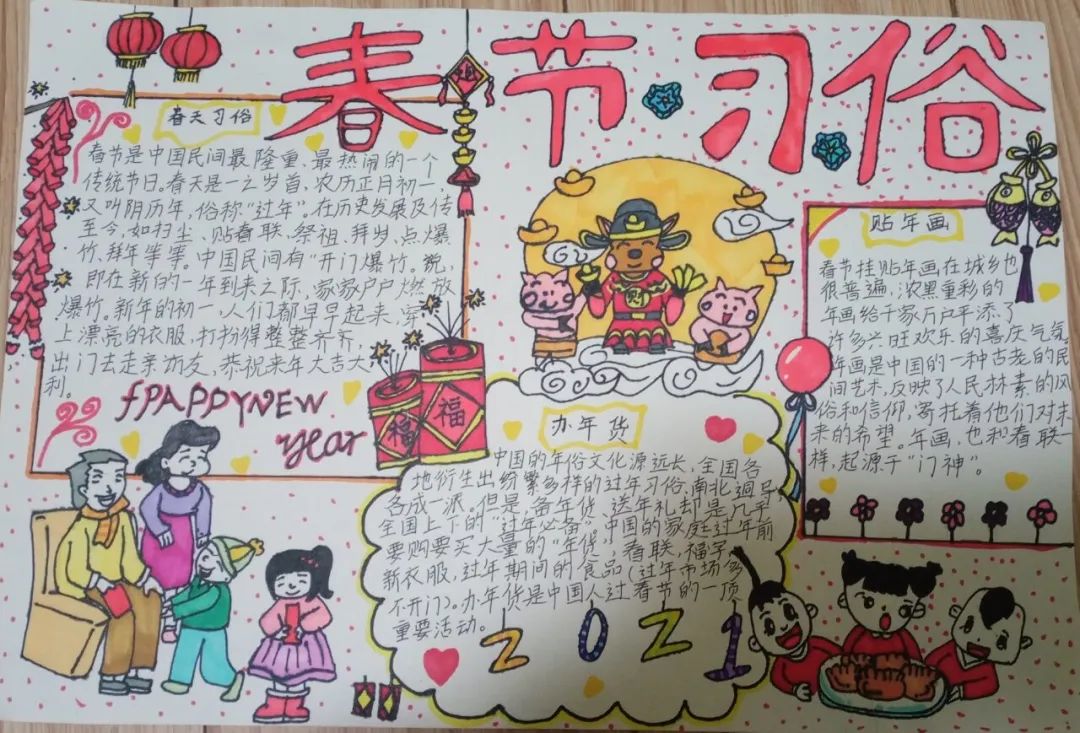 春节习俗
春天习俗
春节是中国民间最隆重、最热闹的一个
传统节日。春天是一之岁首，农历正月初一，
又叫阴历年，俗称“过年”。在历史发展及传
至今，如扫尘、贴春联、祭祖、拜岁、点爆
竹、拜年等等。中国民间有“开门爆竹。说，
即在新的一年到来之际，家家户户燃放
爆竹。新年的初一，人们都早早起来，穿
上漂亮的衣服，打扮得整整齐齐，
出门去走亲访友，恭祝来年大吉大
利。
fPAPPYNEW
year
福
福
财
办年货
中国的年俗文化源远长，全国各
地衍生出纷繁多样的过年习俗，南北迥异
各成一派。但是，备年货、送年礼却是几乎
全国上下的“过年必备”。中国的家庭过年前
要购要买大量的“年货，春联，福字，
新衣服，过年期间的食品（过年市场多
不开门）。办年货是中国人过春节的一项
重要活动。
2021
贴年画
春节挂贴年画在城乡也
很普遍，浓黑重彩的
年画给千家万户平添了
许多兴旺欢乐的喜庆气氛
年画是中国的一种古老的民
间艺术，反映了人民林素的风
俗和信仰，寄托着他们对未
来的希望。年画，也和春联
样，起源于“门神”。